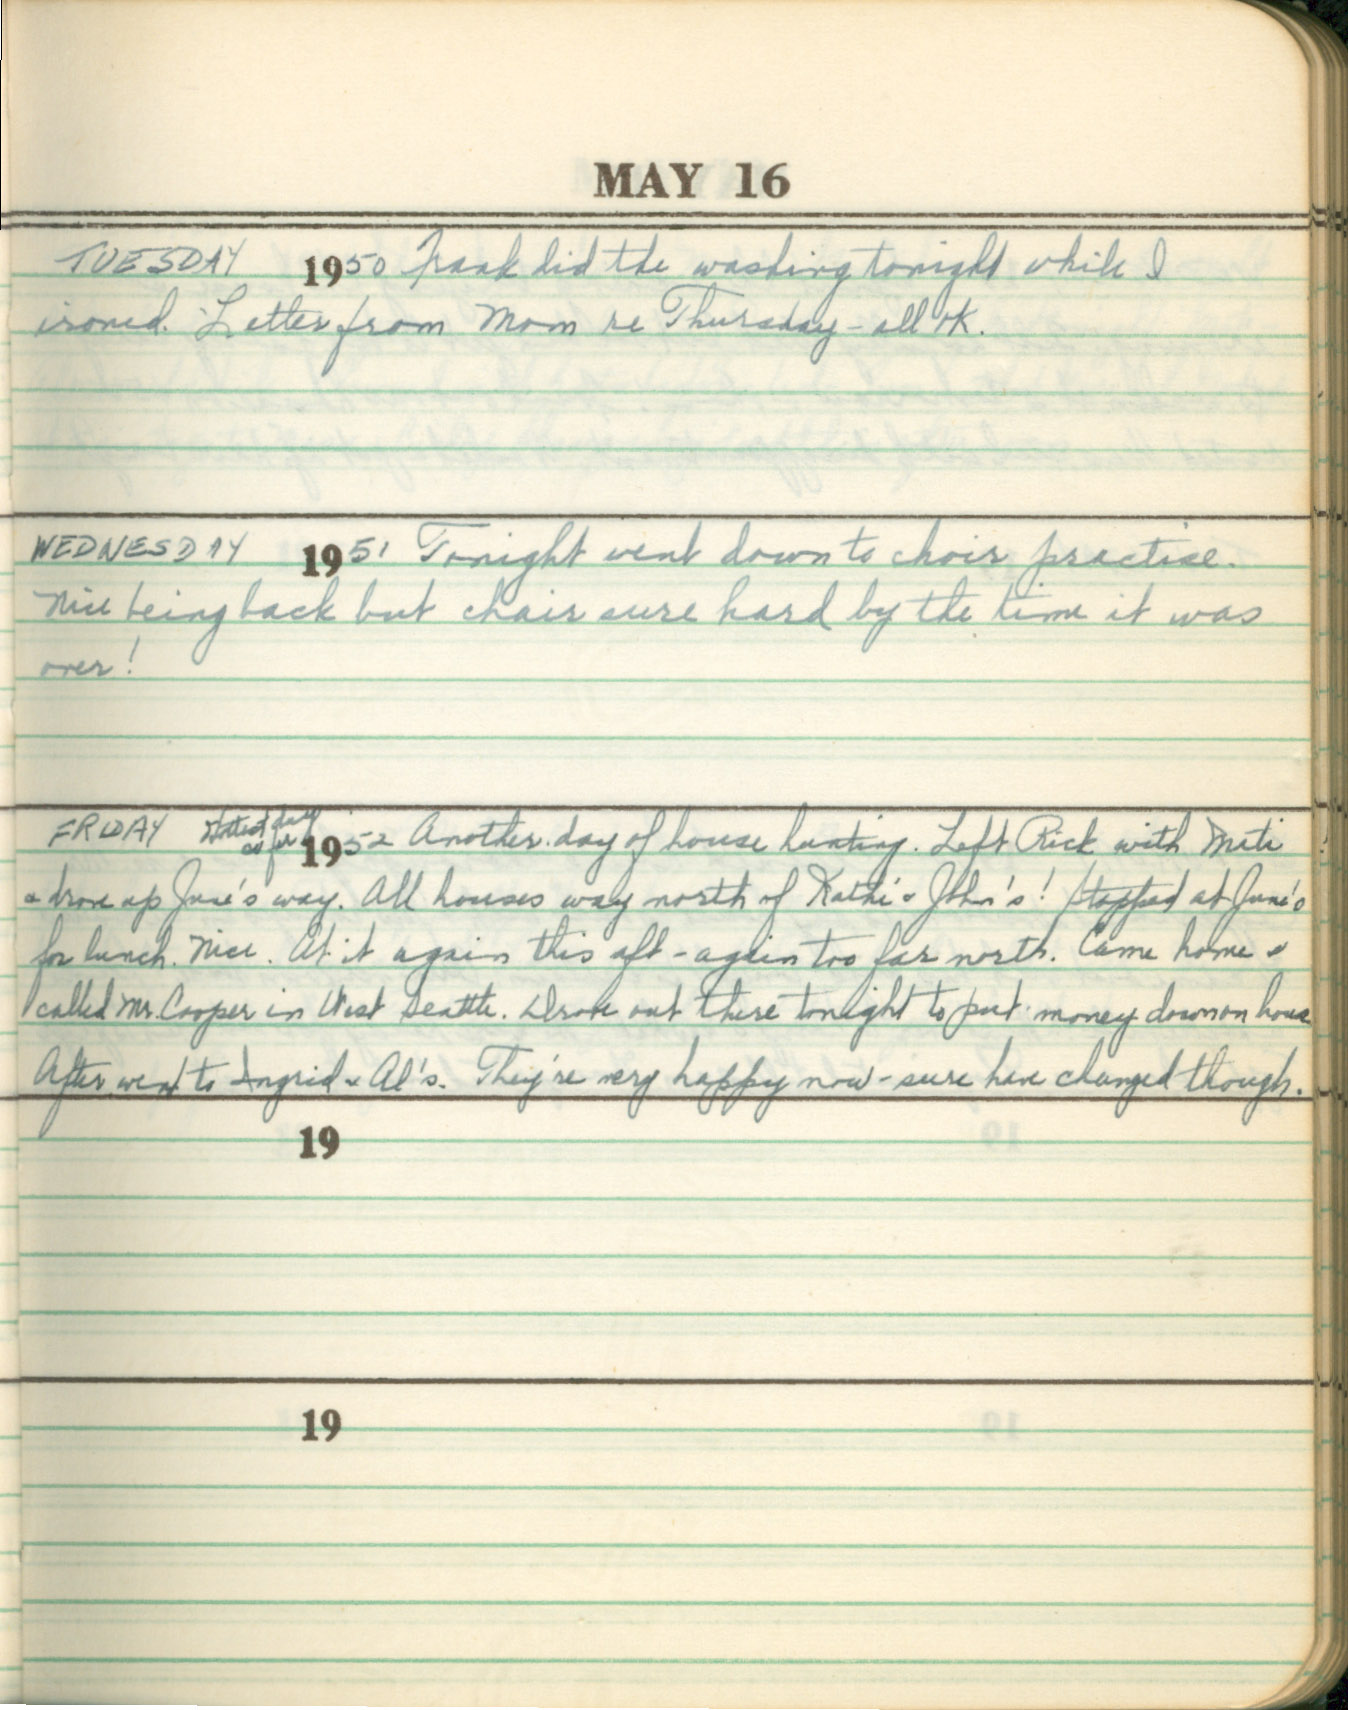 MAY 16
TUESDAY 1950 Frank did the washing tonight while I
ironed. Letter from Mom re Thursday - all OK.
WEDNESDAY 1951 Tonight went down to choir practise.
Nice being back but chair sure hard by the time it was
over!
FRIDAY Hottest day
so far 1952 Another day of house hunting. Left Rick with Meti
& drove up June's way. All houses way north of Kathi & John's! Stopped at June's
for lunch. Nice. At it again this aft - again too far north. Came home &
called Mr. Cooper in West Seattle. Drove out there tonight to put money down on house
After went to Ingrid & Al's. They're very happy now - sure have changed though.
19
19